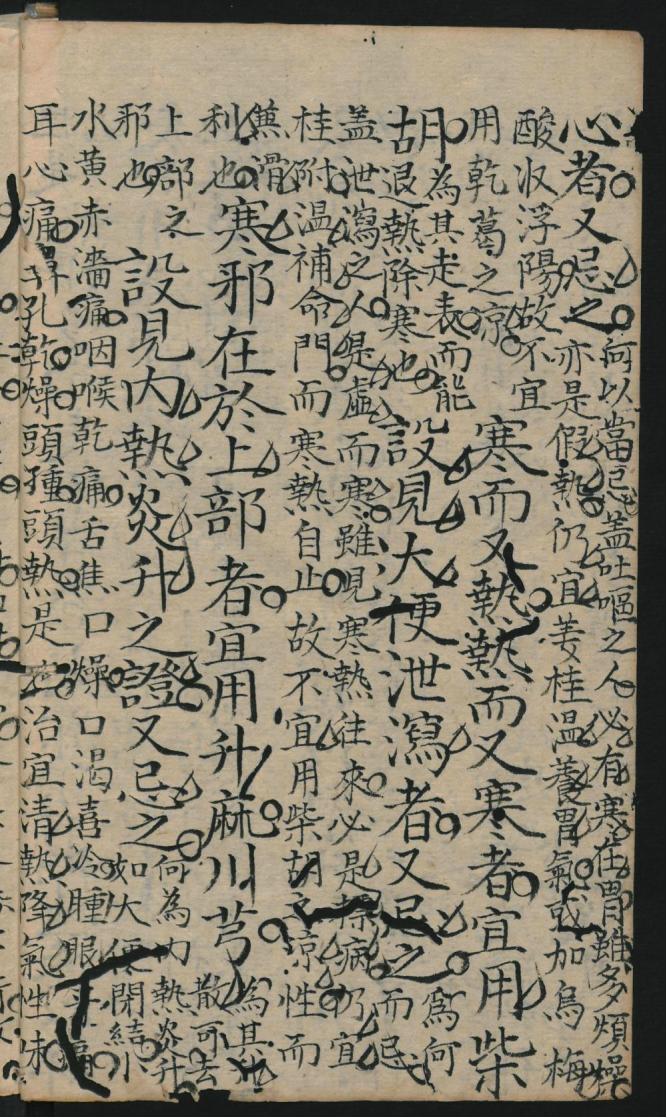 心者又忌之
何以當忌盖吐嘔之人必有寒在胃雖多煩燥
亦是假熱仍宜姜桂温養胃氣或加烏梅
酸収浮陽故不宜
用乾葛之凉
寒而又熱熱而又寒者宜用柴
胡
為其走表而能
退熱除寒也
設見大便泄瀉者又忌之
為何
而忌
盖泄瀉之人俱是虛而寒雖見寒熱往來必是標病仍宜
桂附温補命門而寒熱自止故不宜用柴胡之凉性而
蕉滑
利也
寒邪在於上部者宜用升麻川芎
為其升
散可去
上部之
邪也
設見内熱炎升之證又忌之
何為内熱炎升
如大便閉結小
水黃赤濇痛咽喉乾痛舌焦口燥口渴喜冷腫眼牙痛
耳心痛鼻孔乾燥頭種頭熱是也治宜清熱降氣性味